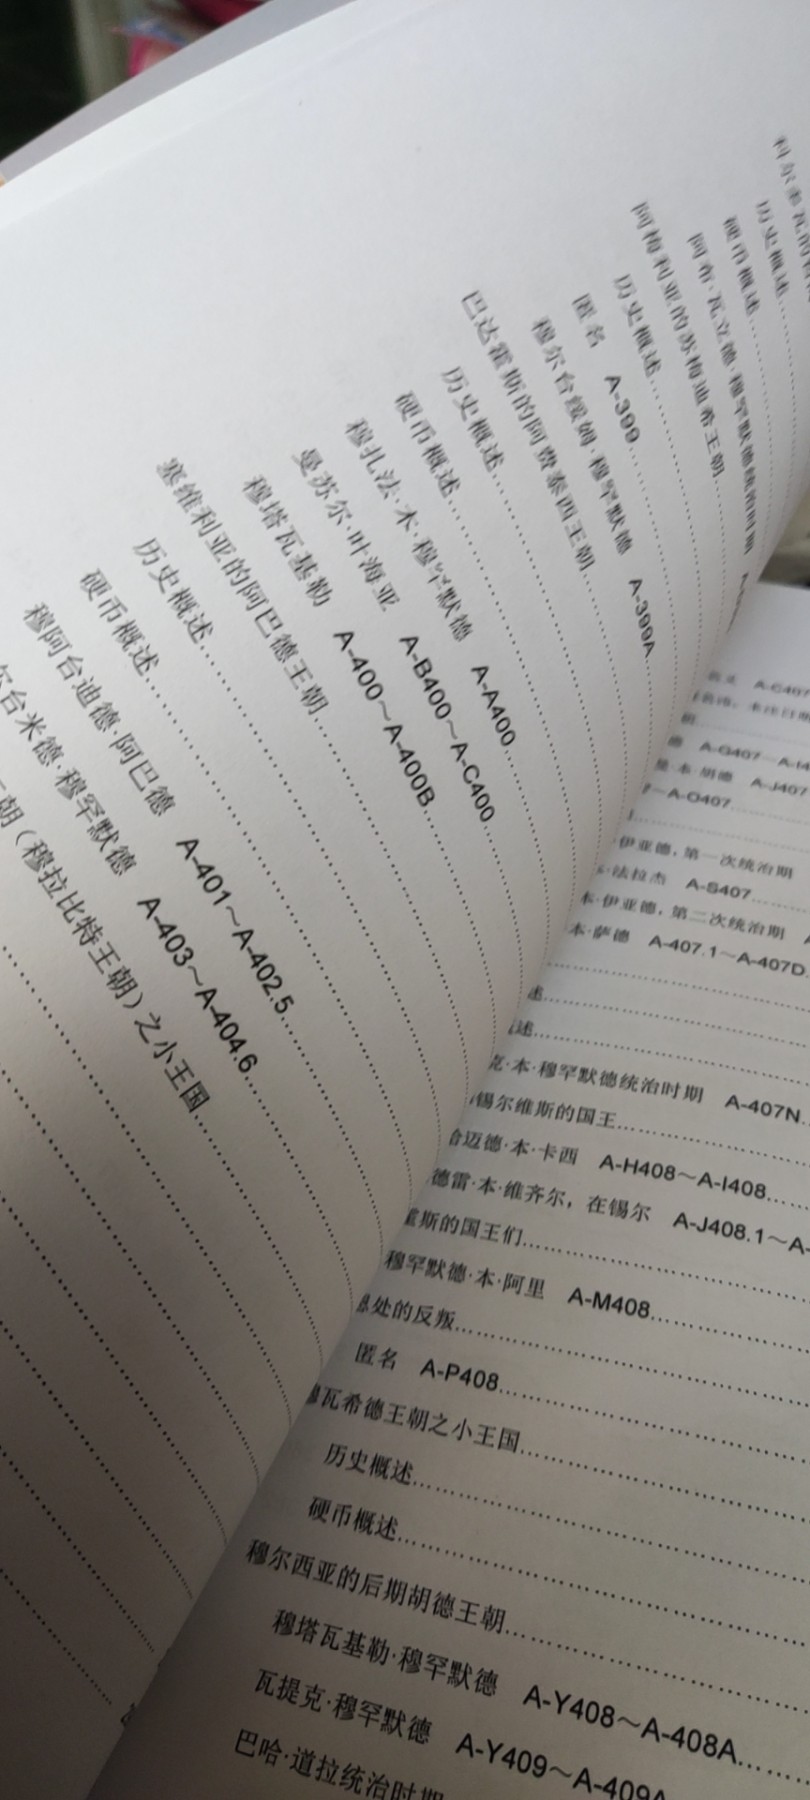 历史概述
硬币概述
阿布·瓦立德·穆罕默德统治时期
阿梅利亚的苏梅迪希王朝
历史概述
匿名 A-399
穆尔台绥姆·穆罕默德 A-399A
巴达霍斯的阿费泰西王朝
历史概述
硬币概述
穆扎法·本·穆罕默德 A-A400
曼苏尔·叶海亚 A-B400～A-C400
穆塔瓦基勒 A-400～A-400B
塞维利亚的阿巴德王朝
历史概述
硬币概述
穆阿台迪德·阿巴德 A-401～A-402.5
台米德·穆罕默德 A-403～A-404.6
朝（穆拉比特王朝）之小王国
A-C407
德 A-G407～A-I4
曼·本·胡德 A-J407
～A-O407
伊亚德，第一次统治期
法拉杰 A-S407
本·伊亚德，第二次统治期
本·萨德 A-407.1～A-407D
述
述
克·本·穆罕默德统治时期 A-407N
锡尔维斯的国王
哈迈德·本·卡西 A-H408～A-I408
德雷·本·维齐尔，在锡尔 A-J408.1～A-
霍斯的国王们
穆罕默德·本·阿里 A-M408
处的反叛
匿名 A-P408
穆瓦希德王朝之小王国
历史概述
硬币概述
穆尔西亚的后期胡德王朝
穆塔瓦基勒·穆罕默德 A-Y408～A-408A
瓦提克·穆罕默德 A-Y409～A-409A
巴哈·道拉统治时期